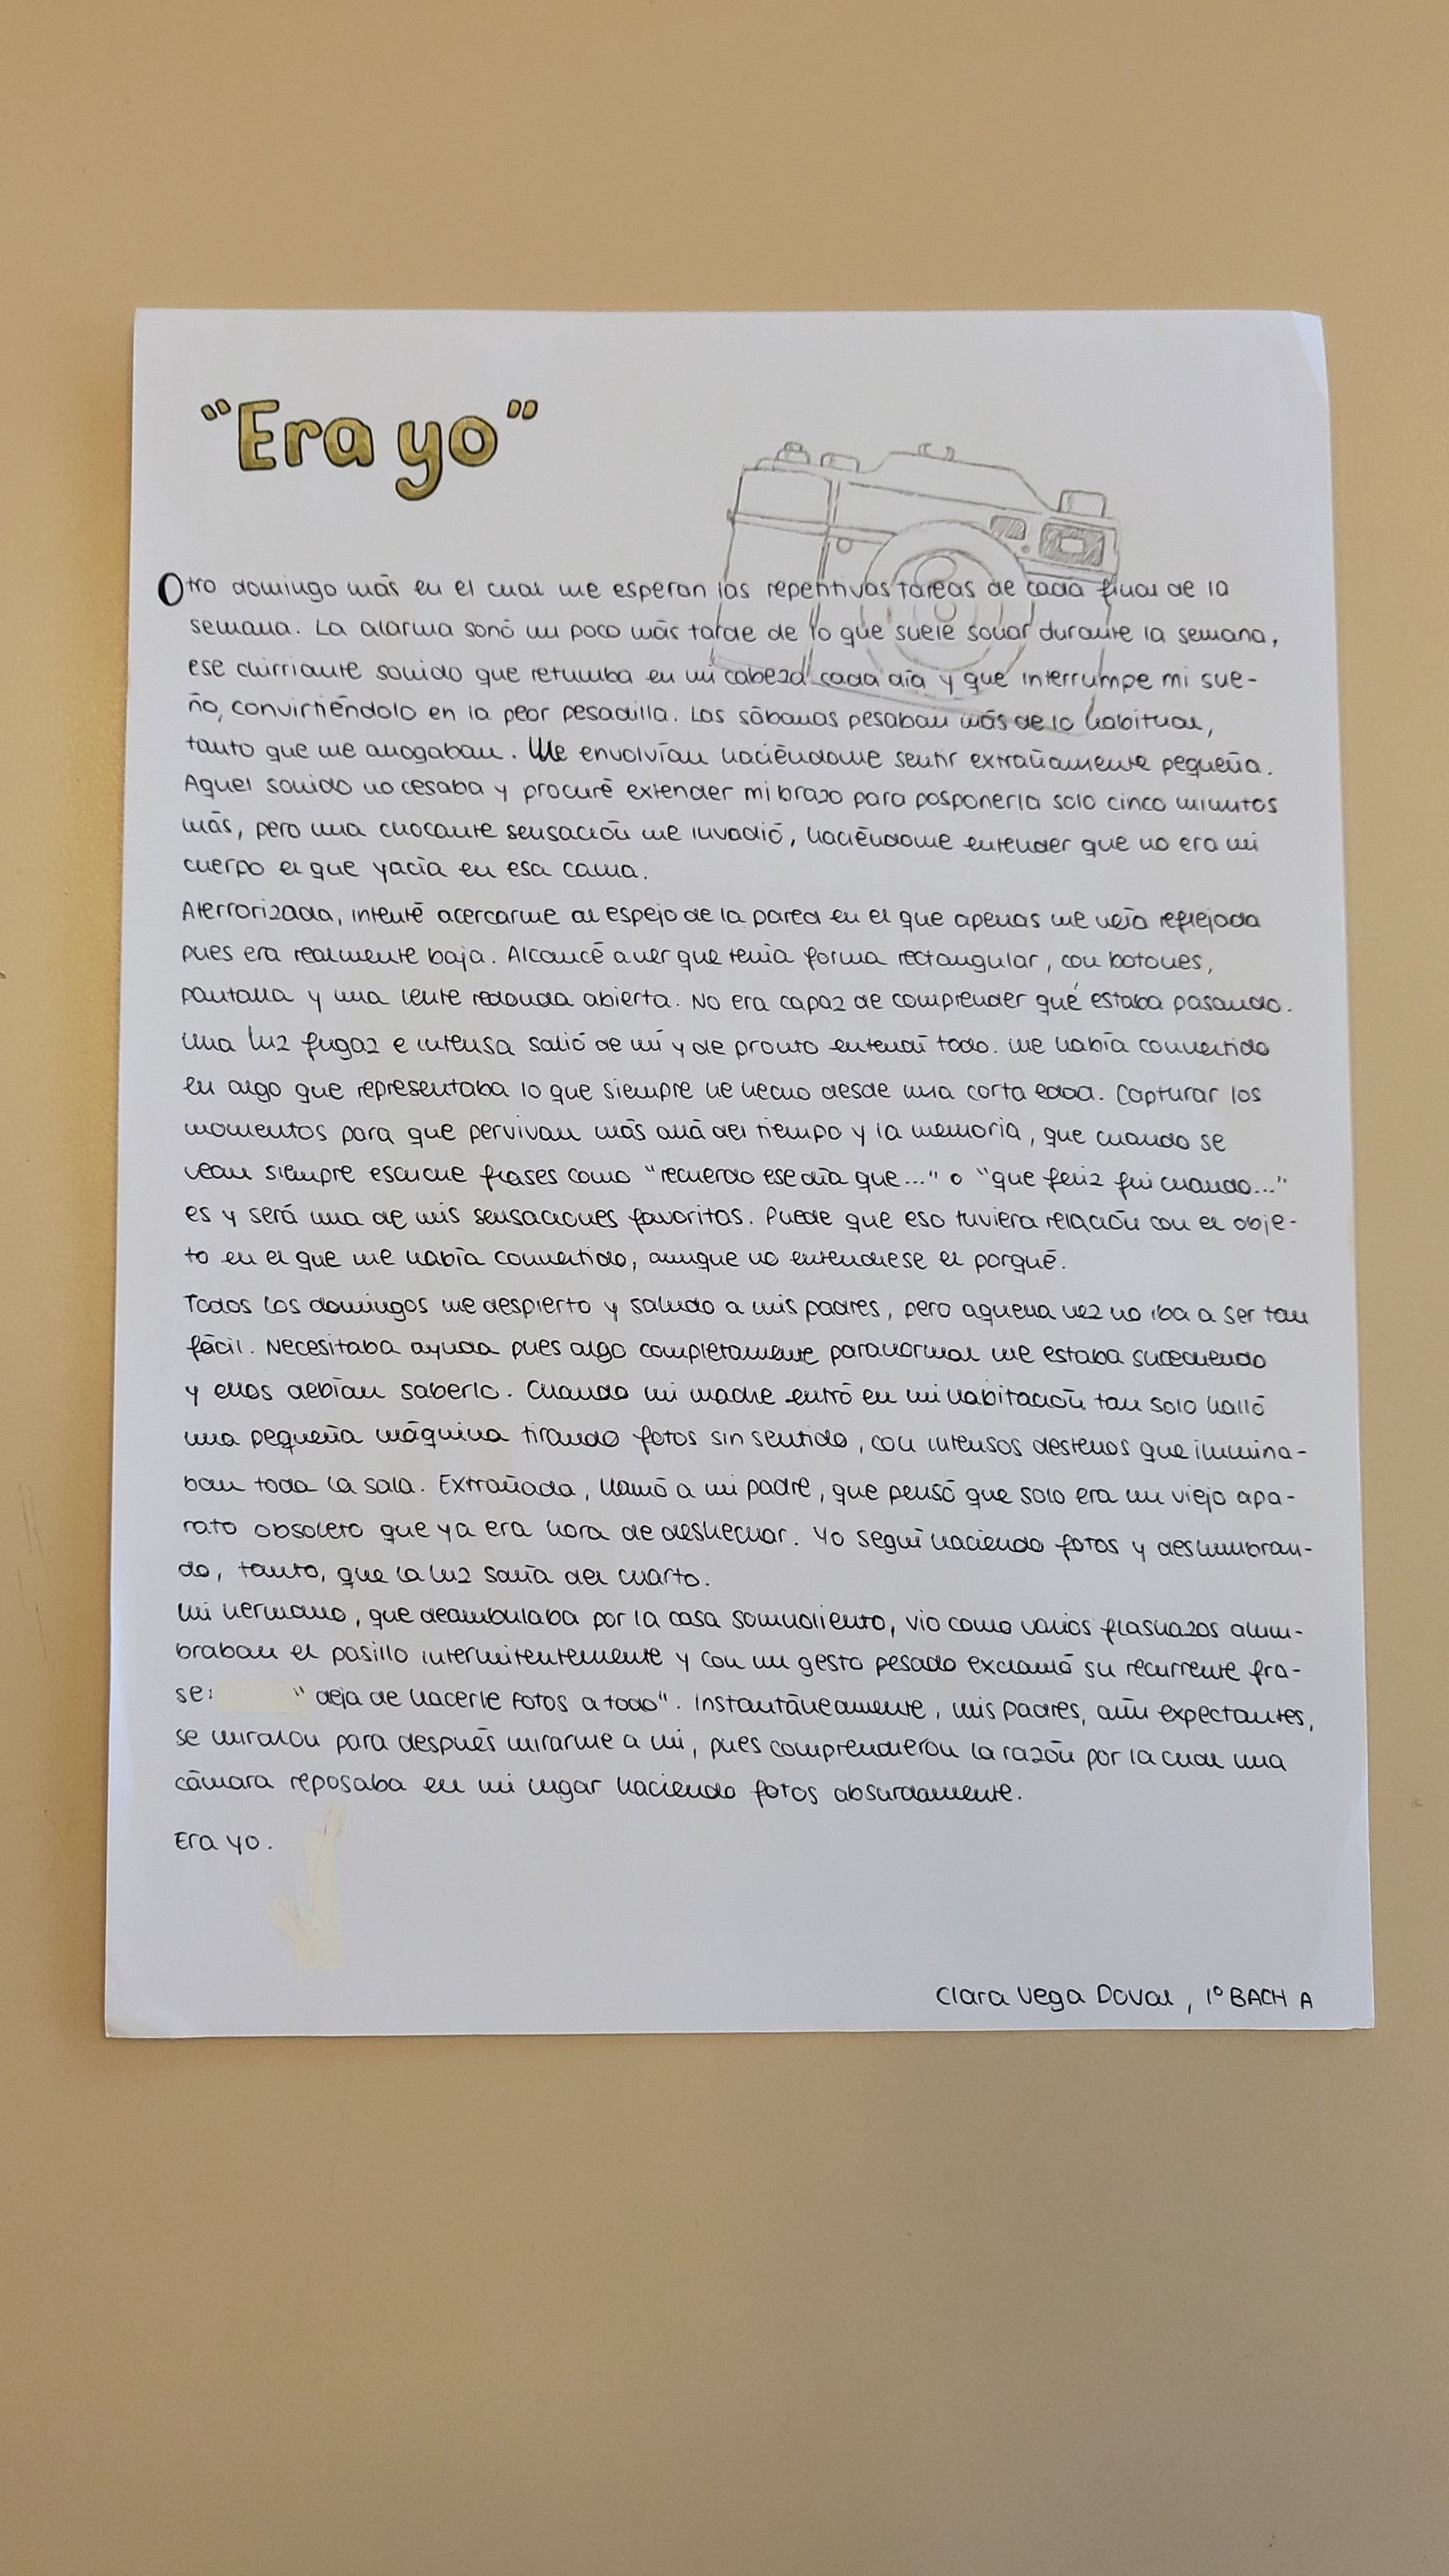 "Era yo"
Otro domingo más en el cual me esperan las repetitivas tareas de cada final de la
semana. La alarma sonó un poco más tarde de lo que suele sonar durante la semana,
ese chirriante sonido que retumba en mi cabeza cada día y que interrumpe mi sue-
ño, convirtiéndolo en la peor pesadilla. Las sábanas pesaban más de lo habitual,
tanto que me ahogaban. Me envolvían haciéndome sentir extrañamente pequeña.
Aquel sonido no cesaba y procuré extender mi brazo para posponerla solo cinco minutos
más, pero una chocante sensación me invadió, haciéndome entender que no era mi
cuerpo el que yacía en esa cama.
Aterrorizada, intenté acercarme al espejo de la pared en el que apenas me veía reflejada
pues era realmente baja. Alcancé a ver que tenía forma rectangular, con botones,
pantalla y una lente redonda abierta. No era capaz de comprender qué estaba pasando.
Una luz fugaz e intensa salió de mí y de pronto entendí todo. Me había convertido
en algo que representaba lo que siempre he hecho desde una corta edad. Capturar los
momentos para que pervivan más allá del tiempo y la memoria, que cuando se
vean siempre escuche frases como "recuerdo ese día que..." o "que feliz fui cuando..."
es y será una de mis sensaciones favoritas. Puede que eso tuviera relación con el obje-
to en el que me había convertido, aunque no entendiese el porqué.
Todos los domingos me despierto y saludo a mis padres, pero aquella vez no iba a ser tan
fácil. Necesitaba ayuda pues algo completamente paranormal me estaba sucediendo
y ellos debían saberlo. Cuando mi madre entró en mi habitación tan solo halló
una pequeña máquina tirando fotos sin sentido, con intensos destellos que ilumina-
ban toda la sala. Extrañada, llamó a mi padre, que pensó que solo era un viejo apa-
rato obsoleto que ya era hora de deshechar. Yo seguí haciendo fotos y deslumbran-
do, tanto, que la luz salía del cuarto.
Mi hermano, que deambulaba por la casa somnoliento, vio como varios flashazos alum-
braban el pasillo intermitentemente y con un gesto pesado exclamó su recurrente fra-
se: "deja de hacerle fotos a todo". Instantáneamente, mis padres, aún expectantes,
se miraron para después mirarme a mi, pues comprendieron la razón por la cual una
cámara reposaba en mi lugar haciendo fotos absurdamente.
Era yo.
Clara Vega Doval, 1º BACH A